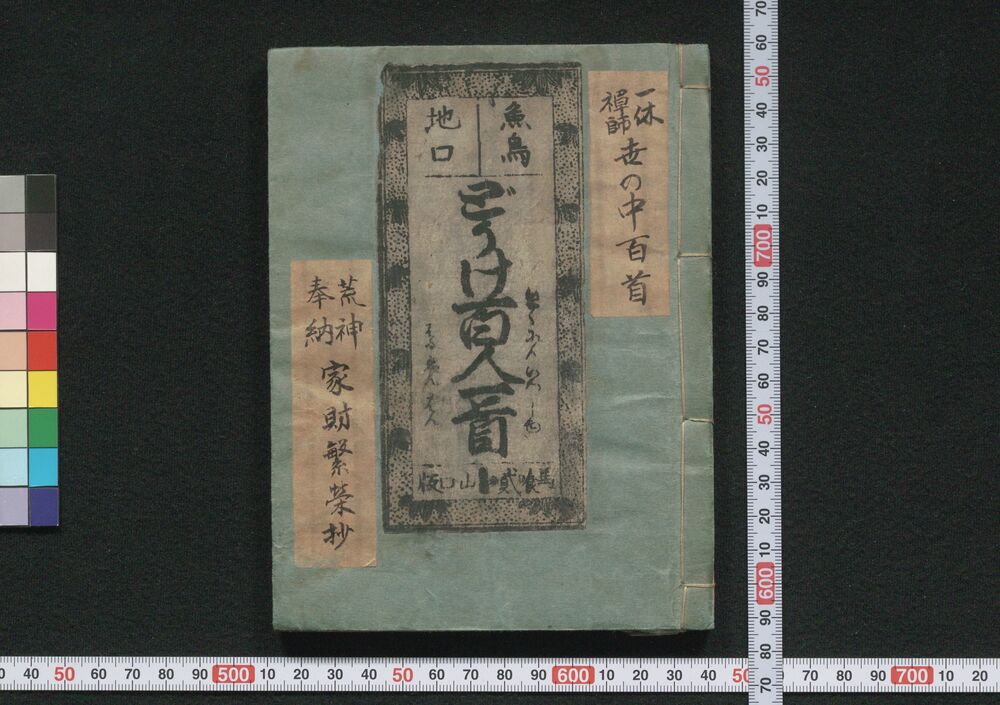 一休
禅師
世の中百首
魚鳥
地口
どうけ百人一首
馬喰弐 山口版
荒神
奉納
家財繁栄抄
70
60
50
40
30
20
10
700
90
80
70
60
50
40
30
20
10
600
90
80
70
30 40 50 60 70 80 90 500 10 20 30 40 50 60 70 80 90 600 10 20 30 40 50 60 70 80 90 700 10 20